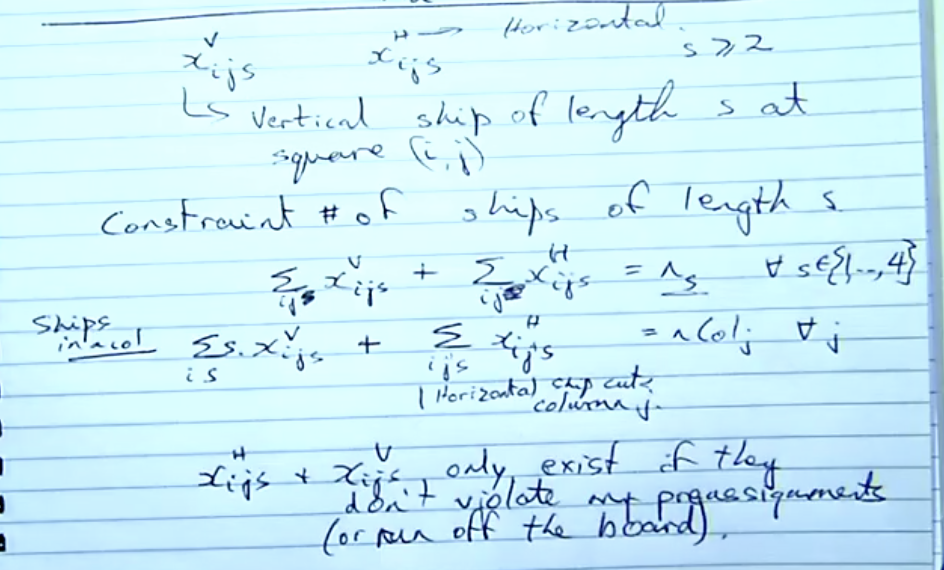 x^V_{ijs} x^H_{ijs} → Horizontal. s ≥ 2
↳ Vertical ship of length s at
square (i,j)
Constraint # of ships of length s
Σ_{ij} x^V_{ijs} + Σ_{ij} x^H_{ijs} = n_s ∀ s∈{1..,4}
Ships
in a col Σ_{is} s.x^V_{ijs} + Σ_{ij's} x^H_{ij's} = nCol_j ∀ j
| Horizontal ship cuts
column j.
x^H_{ijs} + x^V_{ijs} only exist if they
don't violate preassignments
(or run off the board).